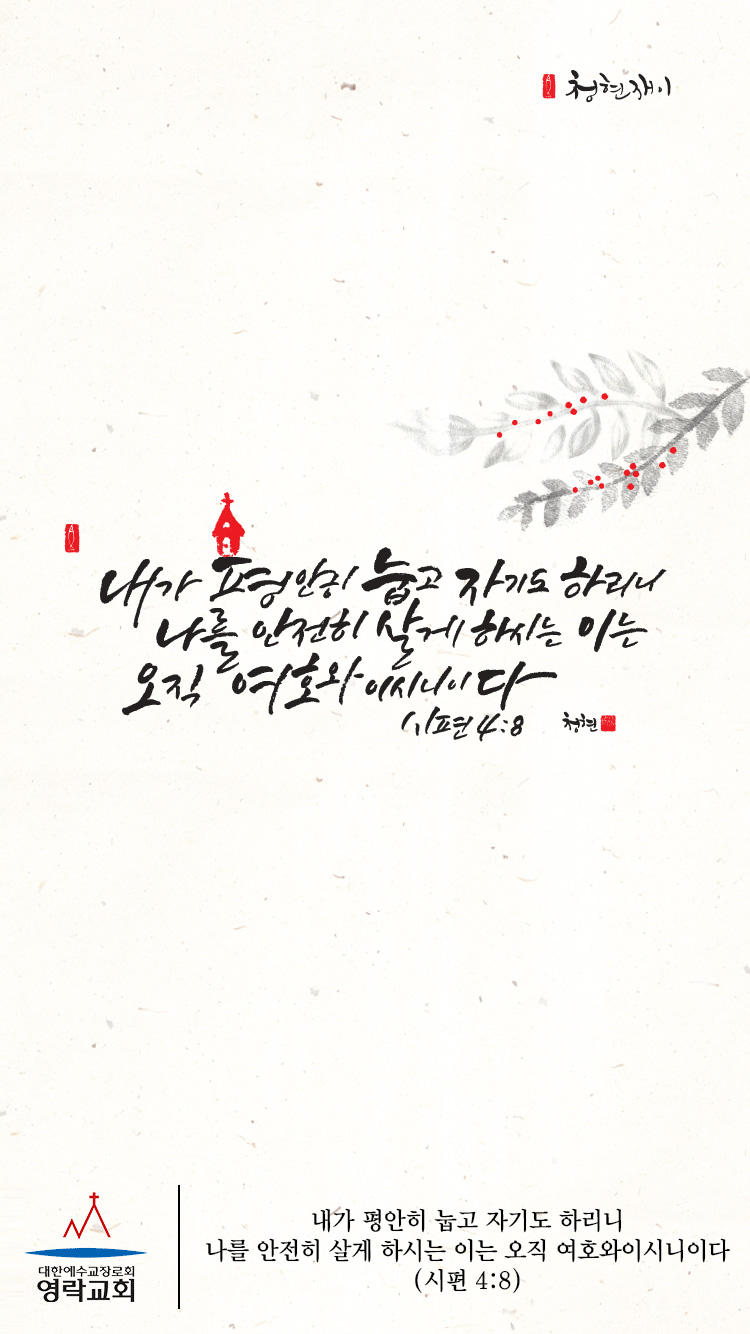 청현재이
내가 평안히 눕고 자기도 하리니
나를 안전히 살게 하시는 이는
오직 여호와이시니이다
시편 4:8
청현
대한예수교장로회
영락교회
내가 평안히 눕고 자기도 하리니
나를 안전히 살게 하시는 이는 오직 여호와이시니이다
(시편 4:8)